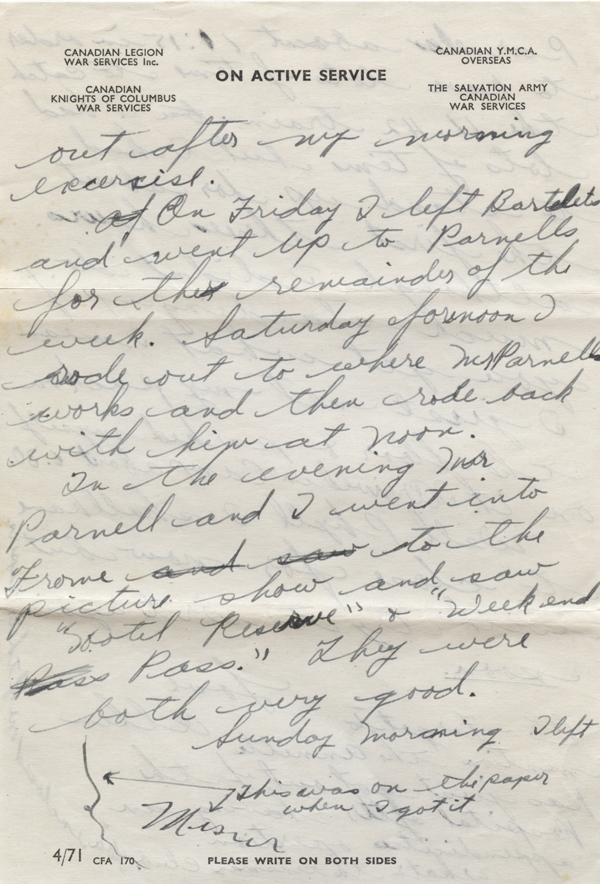 CANADIAN LEGION
WAR SERVICES Inc.
CANADIAN
KNIGHTS OF COLUMBUS
WAR SERVICES
ON ACTIVE SERVICE
CANADIAN Y.M.C.A.
OVERSEAS
THE SALVATION ARMY
CANADIAN
WAR SERVICES
out after my morning
excercise.
at On Friday I left Bartletts
and went up to Parnells
for the remainder of the
week. Saturday forenoon I
rode out to where Mr Parnell
works and then rode back
with him at noon.
In the evening Mr
Parnell and I went into
Frome and saw to the
picture show and saw
"Hotel Reserve" & "Week end
Pass Pass." They were
both very good.
Sunday morning I left
This was on the paper
when I got it
4/71 CFA 170
PLEASE WRITE ON BOTH SIDES